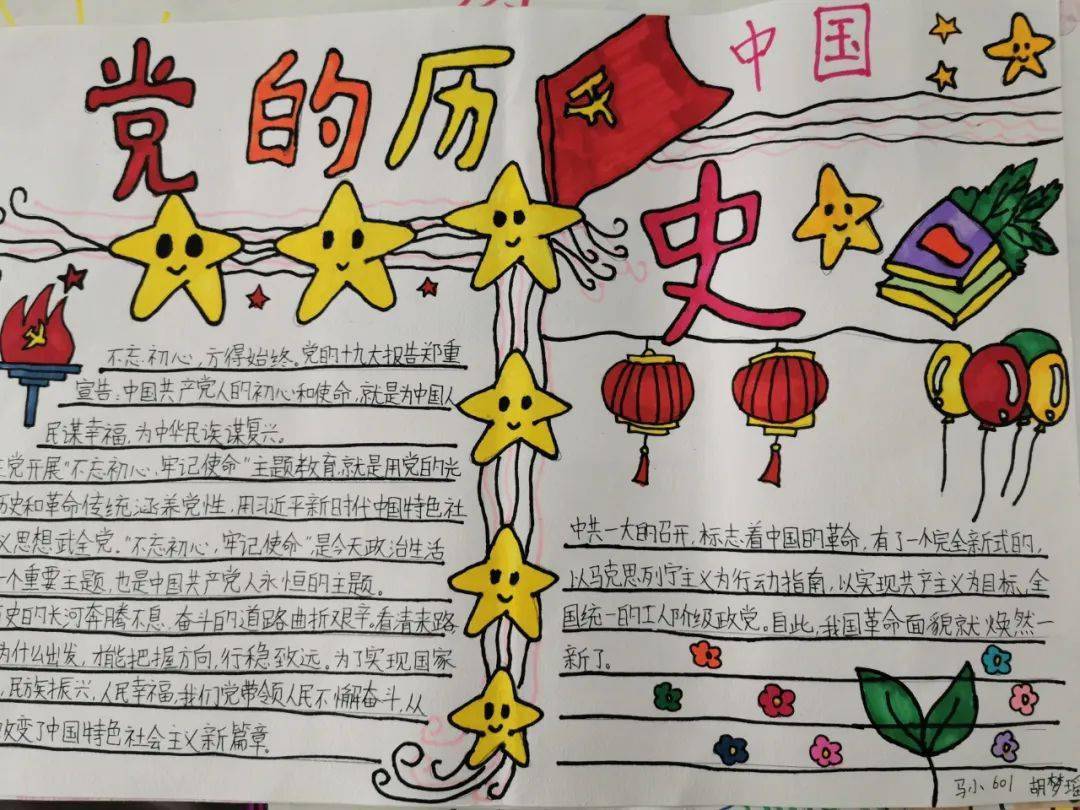 党的历史
中国
不忘初心，方得始终。党的十九大报告郑重
宣告：中国共产党人的初心和使命，就是为中国人
民谋幸福，为中华民族谋复兴。
党开展"不忘初心，牢记使命"主题教育，就是用党的光
历史和革命传统涵养党性，用习近平新时代中国特色社
义思想武全党。"不忘初心，牢记使命"是今天政治生活
一个重要主题，也是中国共产党人永恒的主题。
史的长河奔腾不息，奋斗的道路曲折艰辛。看清来路，
为什么出发，才能把握方向，行稳致远。为了实现国家
，民族振兴，人民幸福，我们党带领人民不懈奋斗，从
改变了中国特色社会主义新篇章。
中共一大的召开，标志着中国的革命，有了一个完全新式的，
以马克思列宁主义为行动指南，以实现共产主义为目标，全
国统一的工人阶级政党。自此，我国革命面貌就焕然一
新了。
马小 601 胡梦瑶